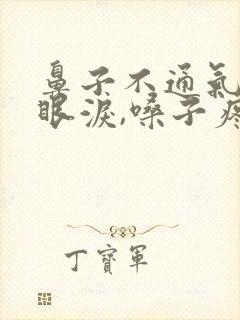 鼻子不通氣
眼淚,嗓子疼
丁寶軍